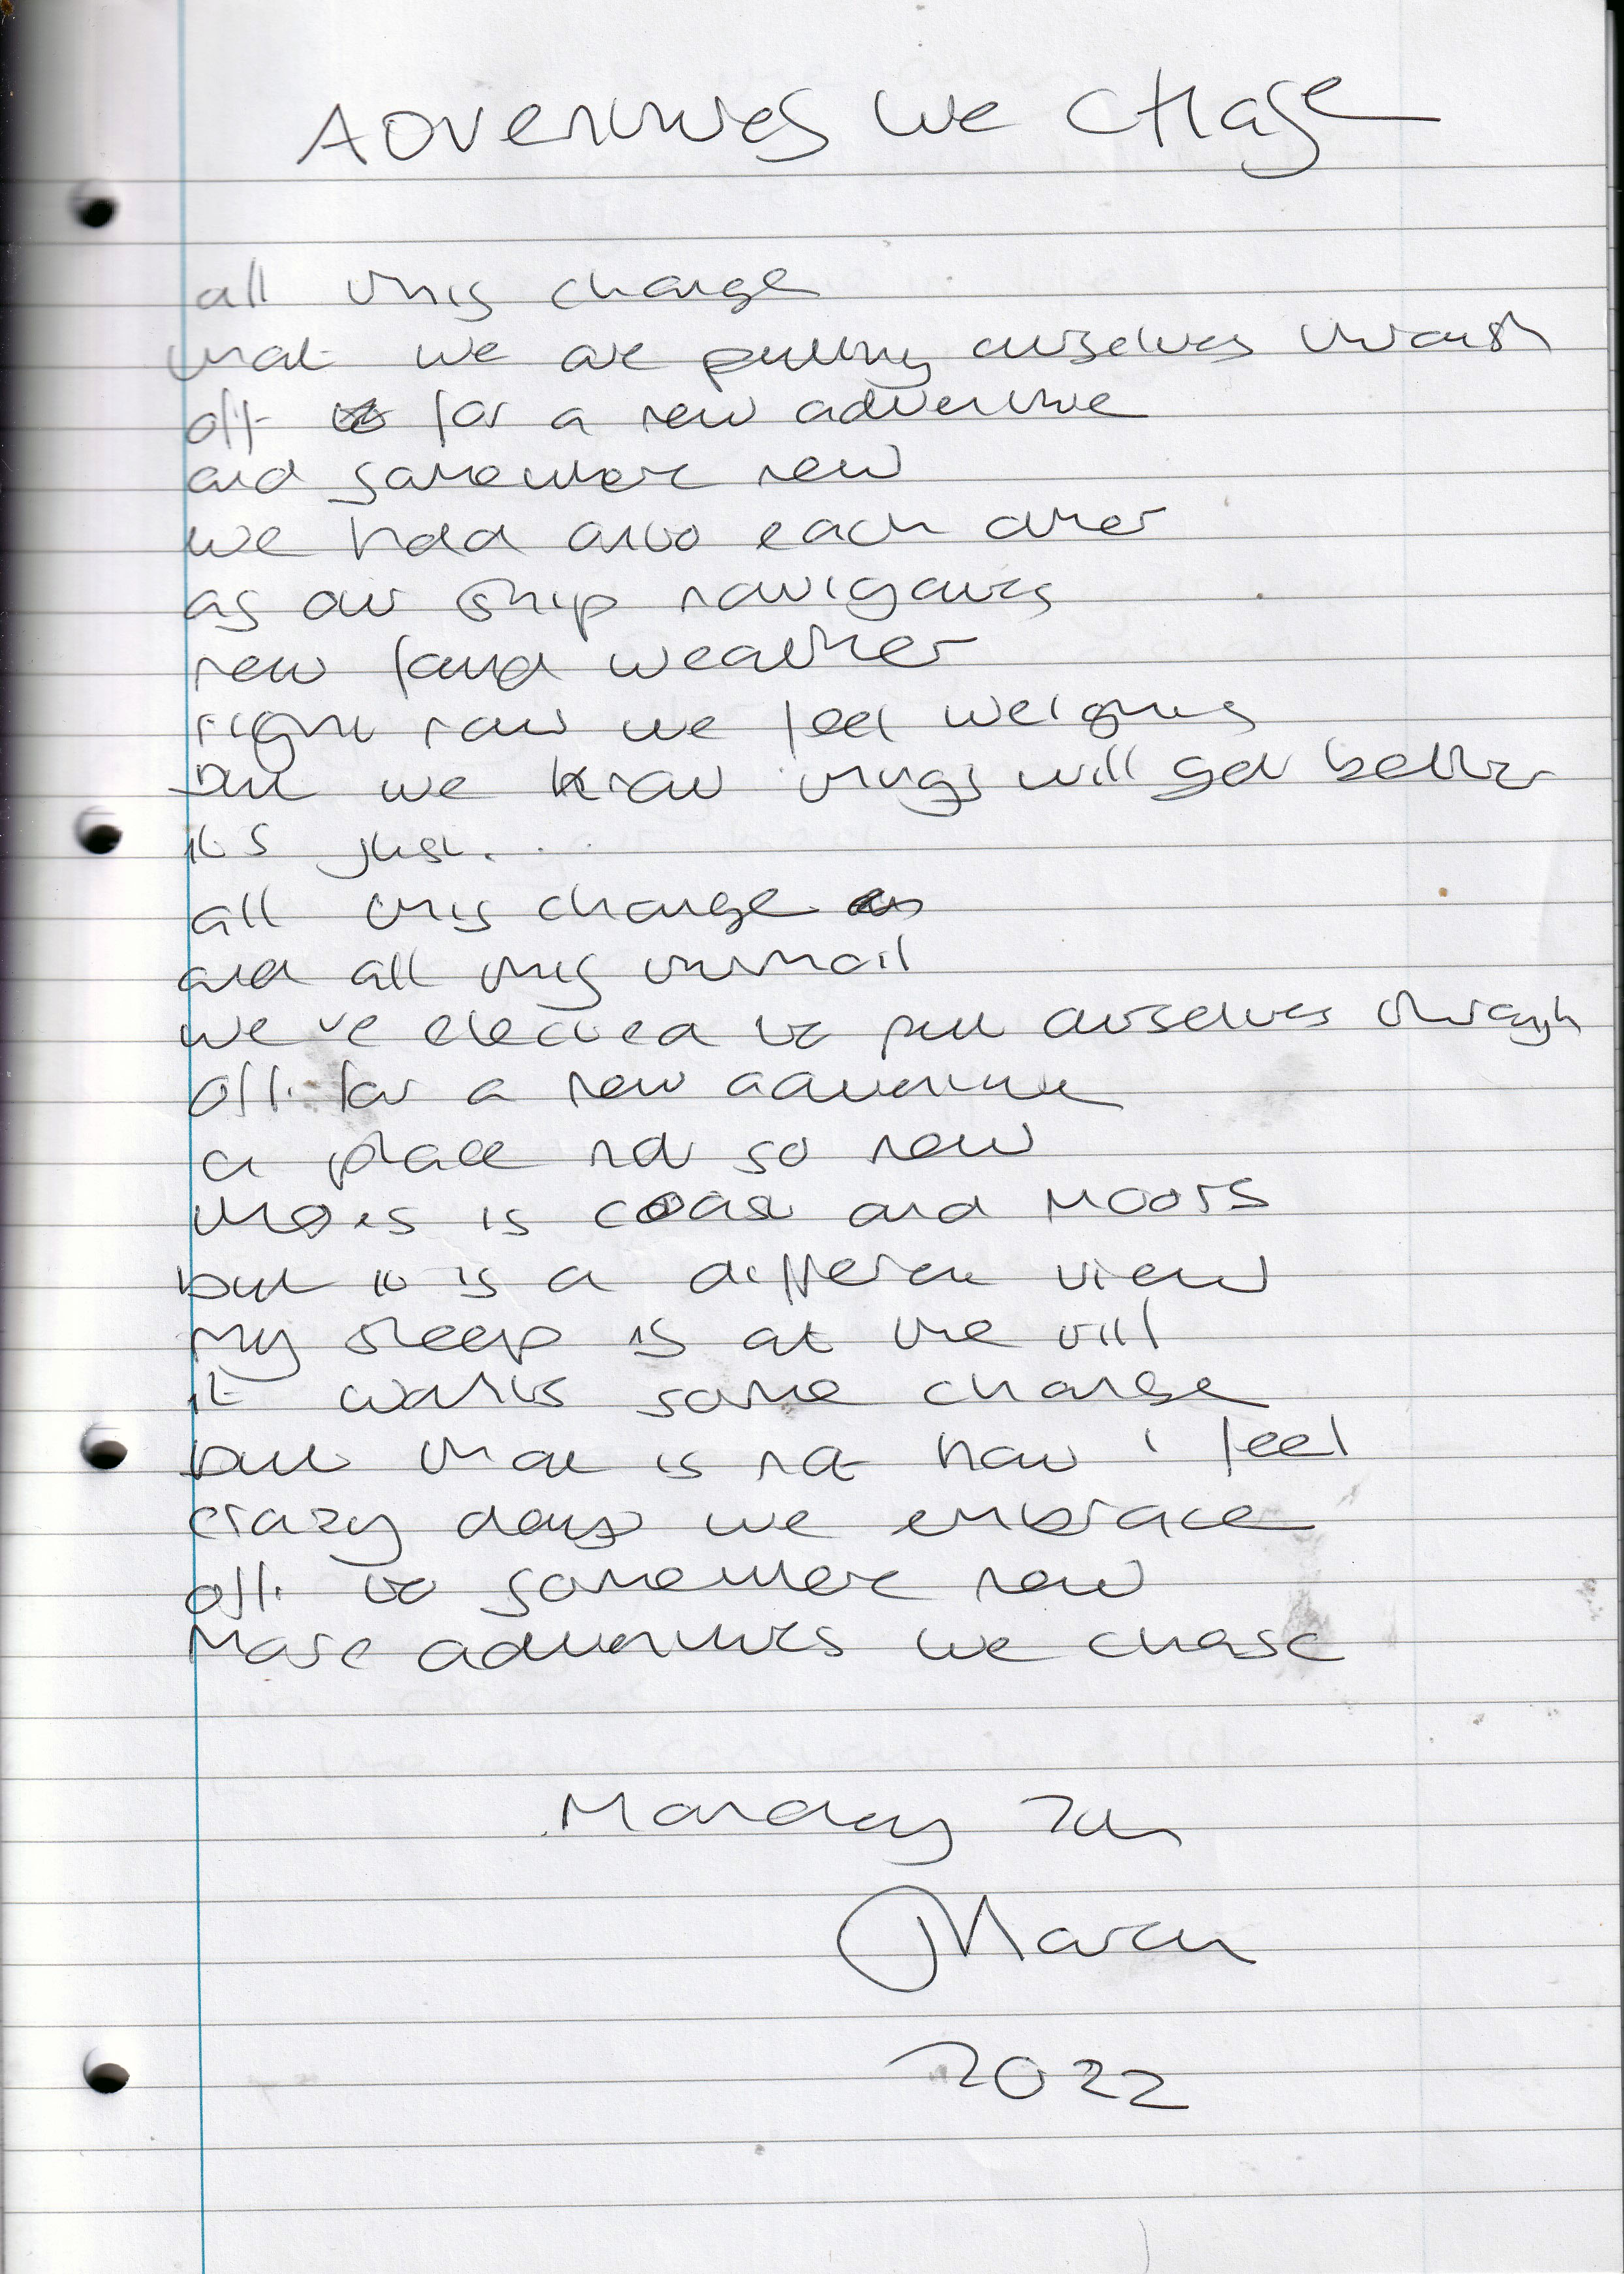 ADVENTURES WE CHASE
all this change
that we are putting ourselves through
off for a new adventure
and somewhere new
we hold onto each other
as our ship navigates
new found weather
right now we feel weights
but we know things will get better
it's just...
all this change
and all this turmoil
we've elected to put ourselves through
off for a new adventure
a place not so new
there is coast and moors
but it is a different view
my sleep is at the
it wants some change
but that is not how i feel
crazy days we embrace
off to somewhere new
more adventures we chase
Monday 7th
March
2022